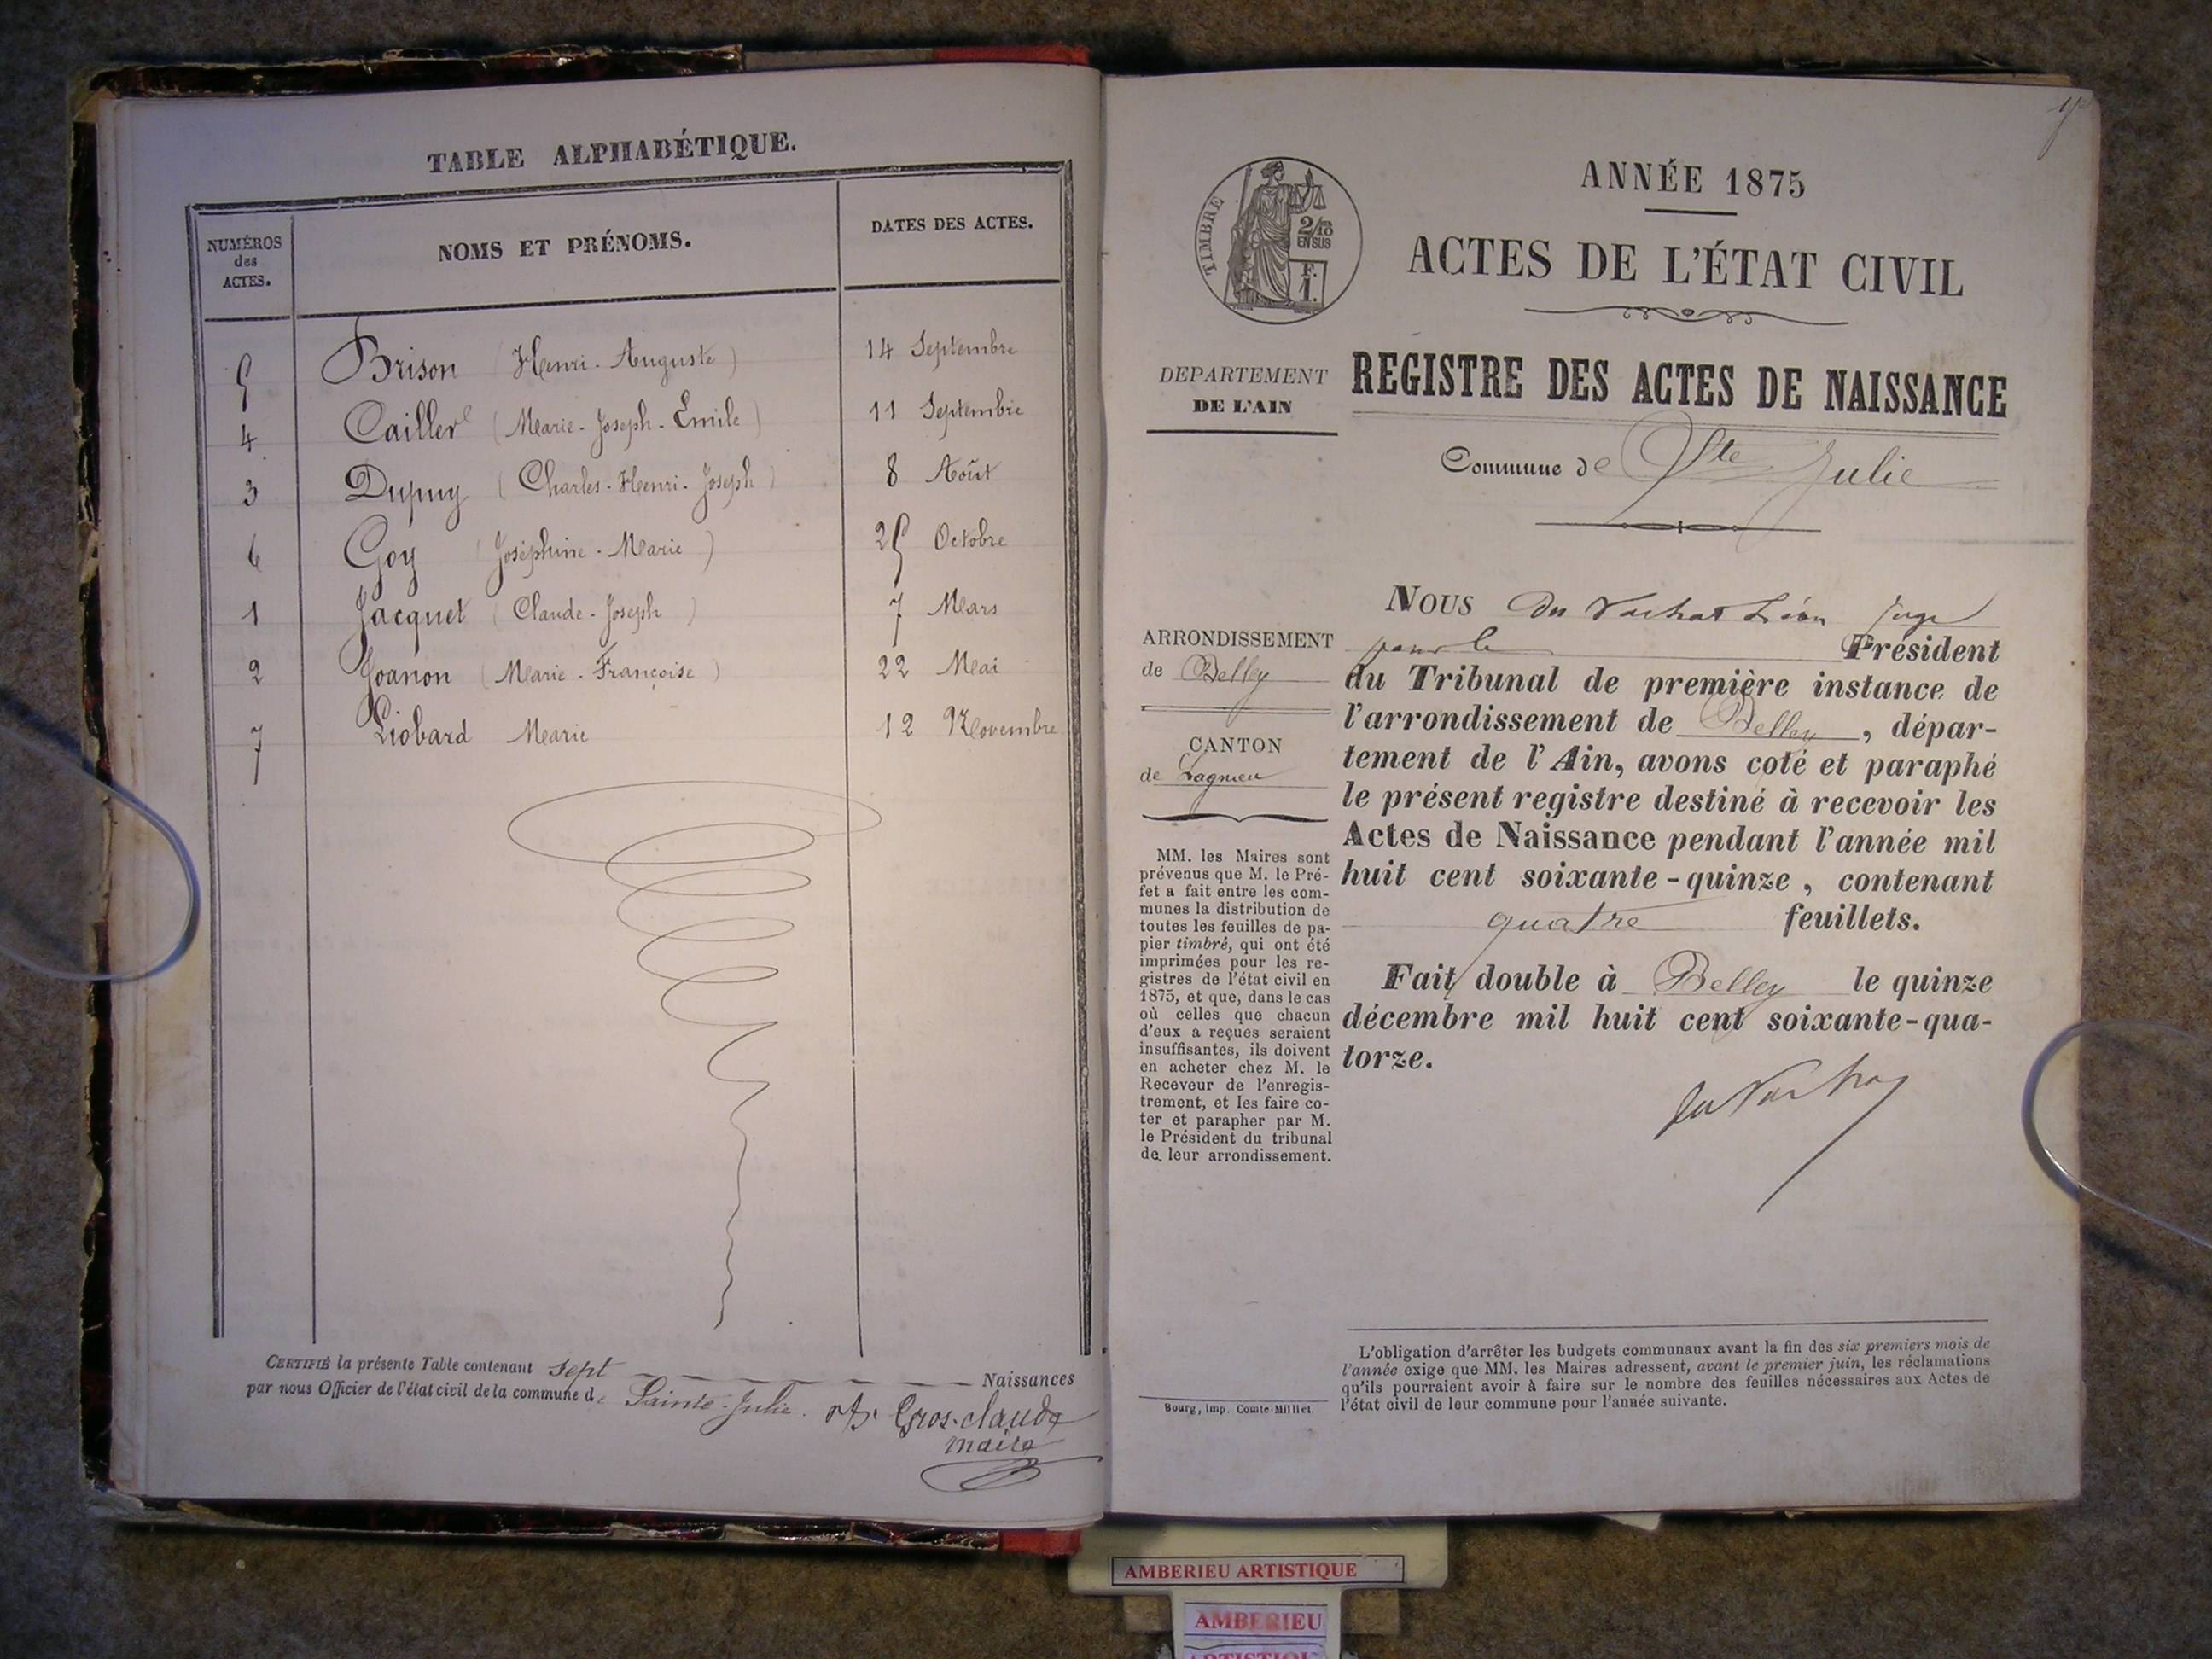 TABLE ALPHABÉTIQUE.
NUMÉROS des ACTES.
NOMS ET PRÉNOMS.
DATES DES ACTES.
5 Brison (Henri-Auguste) 14 Septembre
4 (Marie-Joseph-Emile) 11 Septembre
3 Dupuy (Charles-Henri-Joseph) 8 Août
6 Goy (Joséphine-Marie) 25 Octobre
1 Jacquet (Claude-Joseph) 7 Mars
2 Joanon (Marie-Françoise) 22 Mai
7 Liobard Marie 12 Novembre
CERTIFIÉ la présente Table contenant sept Naissances
par nous Officier de l'état civil de la commune de Sainte-Julie. Gros-claude
maire
ANNÉE 1875
TIMBRE
2/10
EN SUS
F.
1.
ACTES DE L'ÉTAT CIVIL
DEPARTEMENT
DE L'AIN
REGISTRE DES ACTES DE NAISSANCE
Commune de Ste Julie
ARRONDISSEMENT
de Belley
CANTON
de Lagnieu
MM. les Maires sont
prévenus que M. le Pré-
fet a fait entre les com-
munes la distribution de
toutes les feuilles de pa-
pier timbré, qui ont été
imprimées pour les re-
gistres de l'état civil en
1875, et que, dans le cas
où celles que chacun
d'eux a reçues seraient
insuffisantes, ils doivent
en acheter chez M. le
Receveur de l'enregis-
trement, et les faire co-
ter et parapher par M.
le Président du tribunal
de leur arrondissement.
Bourg, imp. Comte-Milliet.
NOUS du Vachat Léon juge
pour le Président
du Tribunal de première instance de
l'arrondissement de Belley, dépar-
tement de l'Ain, avons coté et paraphé
le présent registre destiné à recevoir les
Actes de Naissance pendant l'année mil
huit cent soixante-quinze, contenant
quatre feuillets.
Fait double à Belley le quinze
décembre mil huit cent soixante-qua-
torze.
du Vachat
L'obligation d'arrêter les budgets communaux avant la fin des six premiers mois de
l'année exige que MM. les Maires adressent, avant le premier juin, les réclamations
qu'ils pourraient avoir à faire sur le nombre des feuilles nécessaires aux Actes de
l'état civil de leur commune pour l'année suivante.
AMBERIEU ARTISTIQUE
AMBERIEU